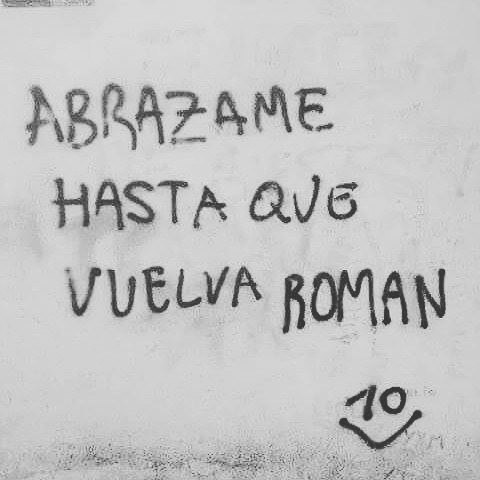 ABRAZAME
HASTA QUE
VUELVA ROMAN
10